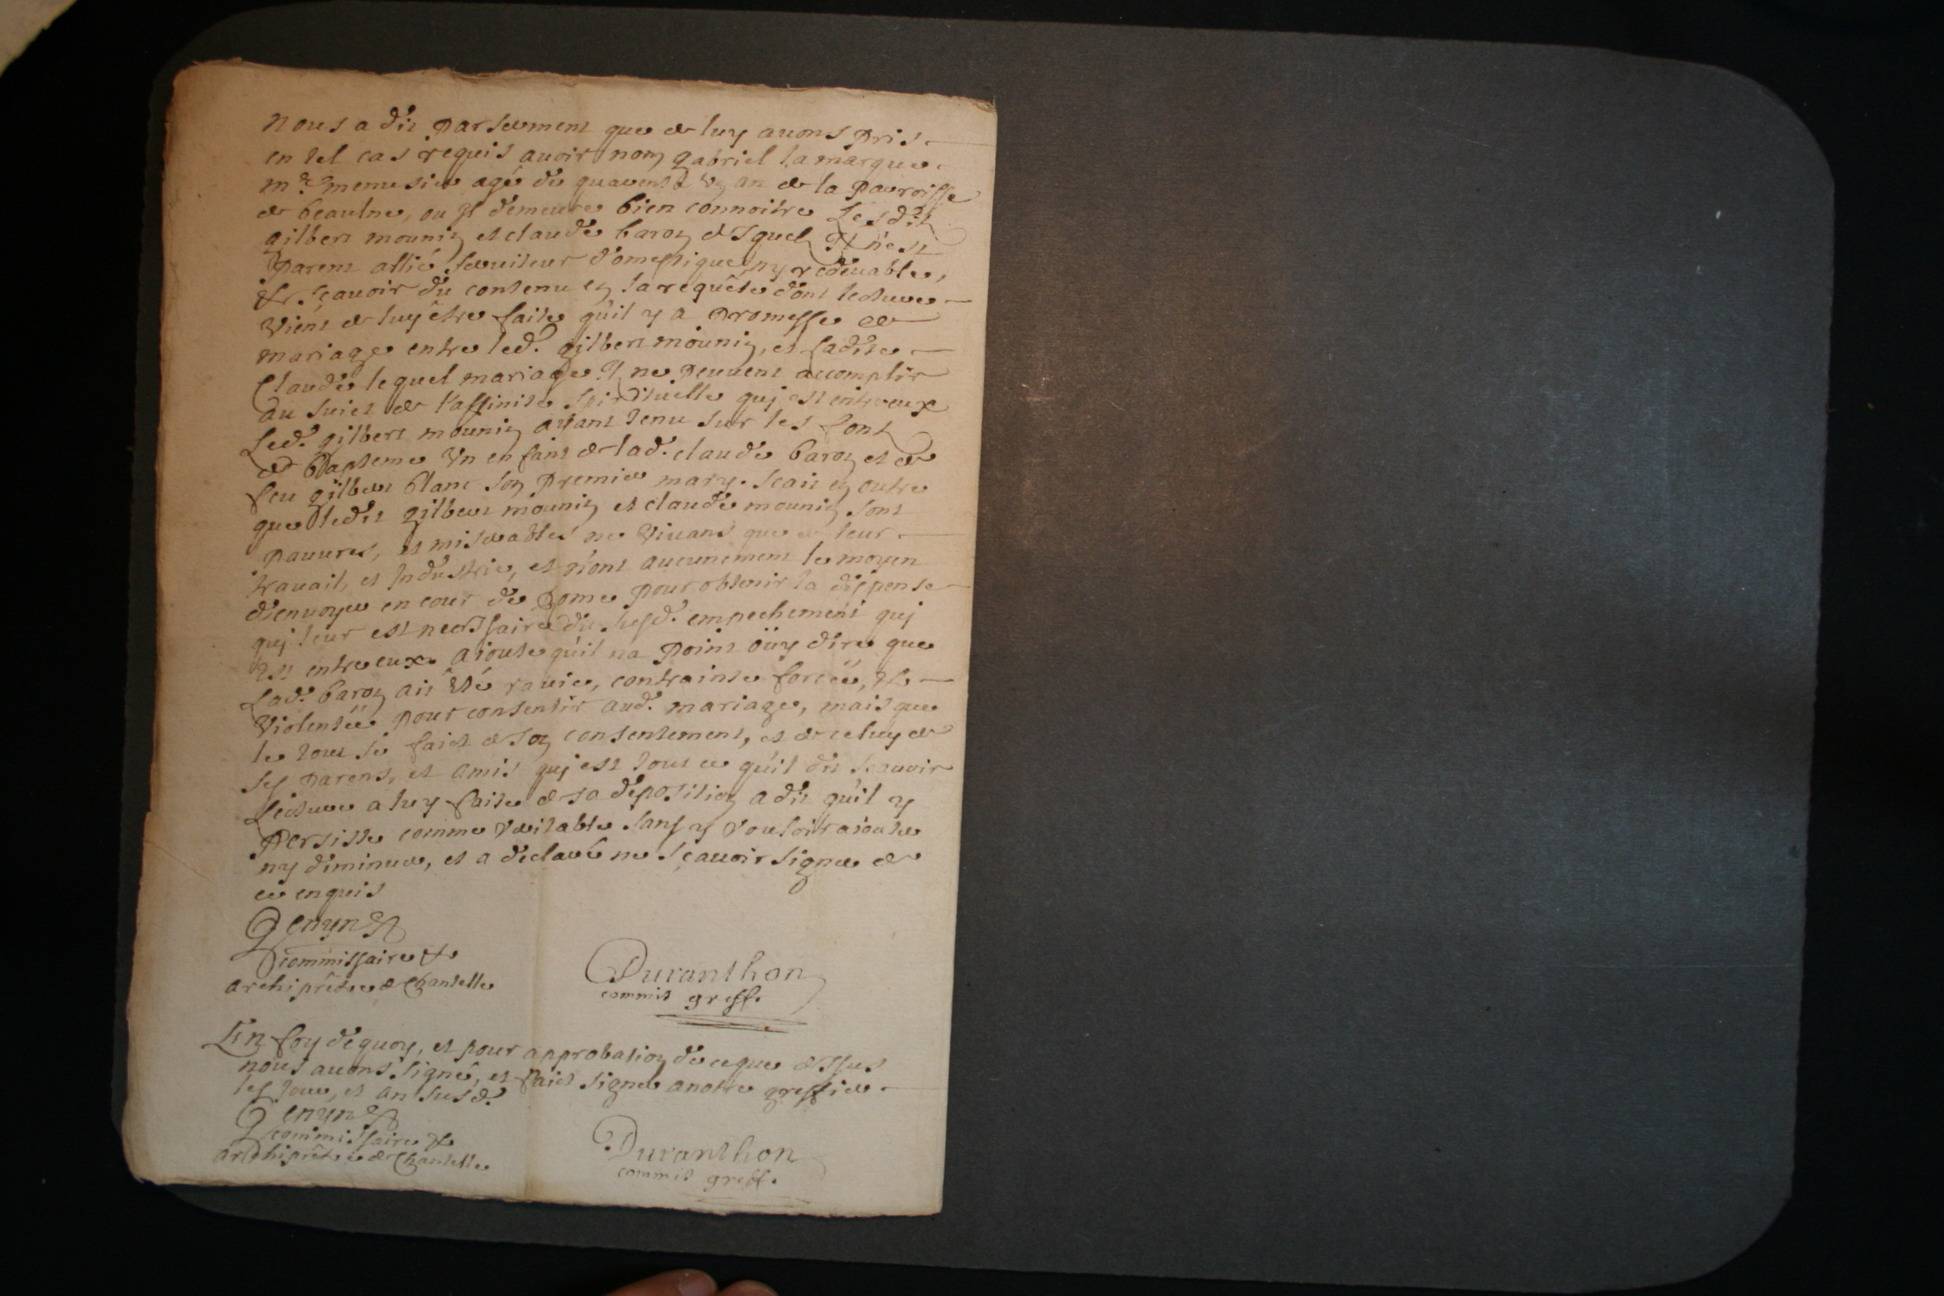 nous a dit par serment que de luy avons pris
en tel cas requis avoir nom gabriel lamarque
m.e menusier agé de quarente un an de la parroisse
de beaulne, ou il demeure bien connoitre lesd.ts
gilbert mounin et claude baron desquels il n'est
parent allié serviteur domestique, ny redevable,
et sçavoir du contenu en la requête dont lecture
vient de luy être faite qu'il y a promesse de
mariage entre led. gilbert mounin, et ladite
Claude lequel mariage il ne peuvent accomplir
au suiet de l'affinité spirituelle qui est entreeux
Led. gilbert mounin aïant tenu sur les fonts
de bapteme un enfant de lad. claude baron et de
feu gilbert blanc son premier mary. scait en outre
que ledit gilbert mounin et claude mounin sont
pauvres, et miserables ne vivans que de leur
travail, et industrie, et n'ont aucunement le moyen
d'envoyer en cour de Rome pour obtenir la dispense
qui leur est necessaire du susd. empechement qui
est entreeux. aioute qu'il na point oüy dire que
Lad. baron ait êté ravie, contrainte forcée, et
violentée pour consentir aud. mariage, mais que
le tout se fait de son consentement, et de celuy de
ses parens, et amis qui est tout ce qu'il dit scavoir
Lecture a luy faite de sa déposition a dit qu'il y
persiste comme veritable sans y vouloir aiouter
ny diminuer, et a déclaré ne sçavoir signer de
ce enquis
Genyn
commissaire et
archiprêtre de Chantelle
Duranthon
commis greff.
En foy dequoy, et pour approbation de ceque dessus
nous avons signé, et fait signer a notre greffier
les jour, et an susd.
Genyn
commissaire et
archiprêtre de Chantelle
Duranthon
commis greff.